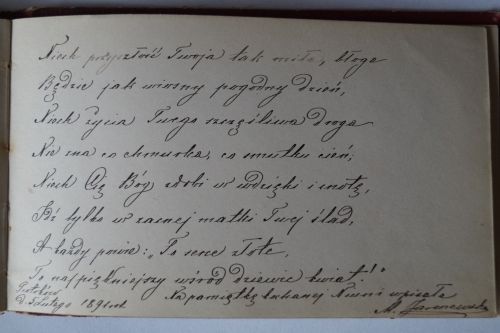 Niech przyszłość Twoja tak miła, błoga
Będzie jak wiosny pogodny dzień,
Niech życia Twego szczęśliwa droga
Nie ma co chmurka, co smutku cień;
Niech Cię Bóg zdobi w wdzięki i cnotę,
Idź tylko w zacnej matki Twej ślad,
A każdy powie: „To serce złote,
To najpiękniejszy wśród dziewic kwiat!"
Na pamiątkę kochanej Niuni wpisała
Piotrków
d. 5 lutego 1891 rok
A.